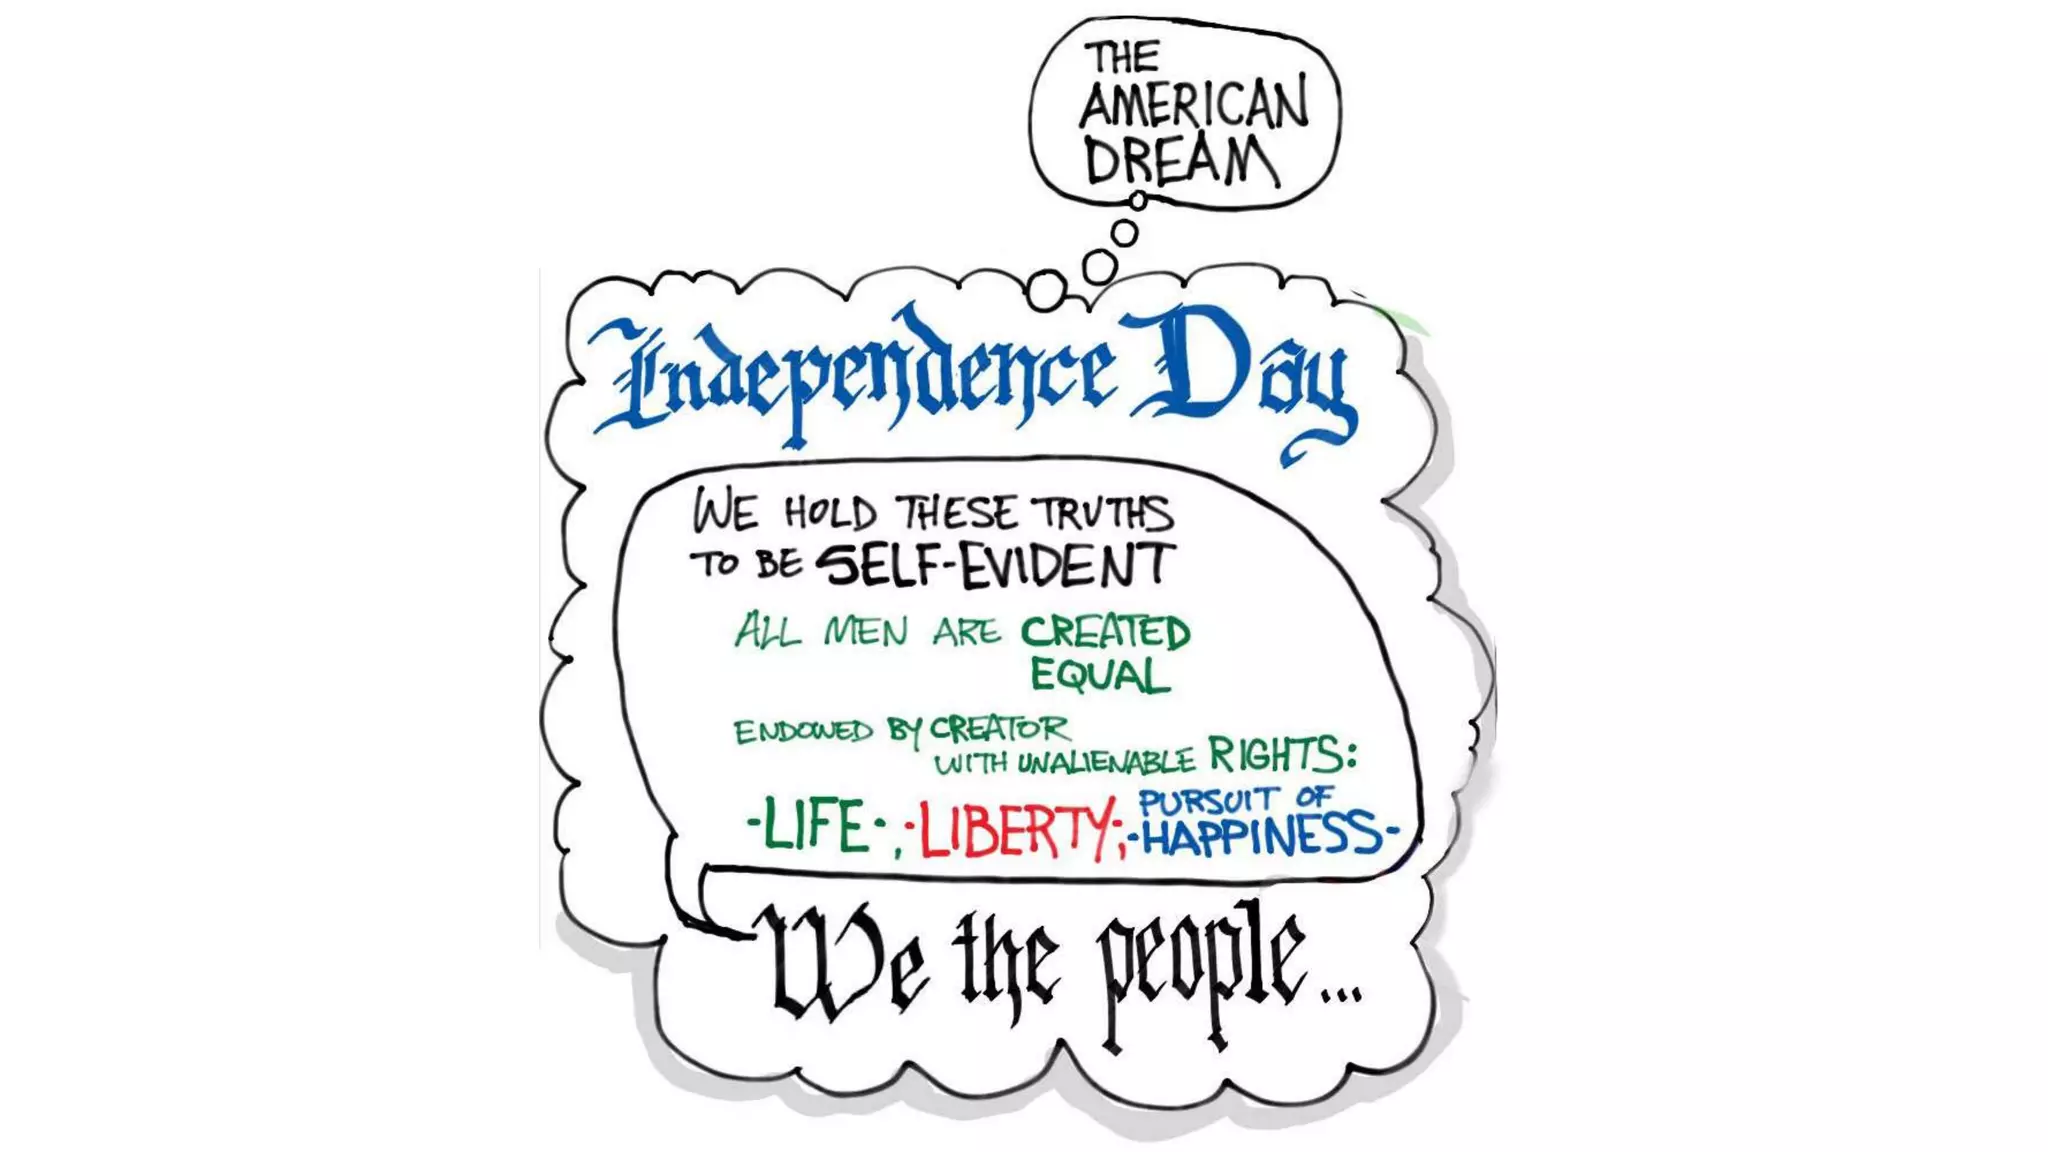 THE
AMERICAN
DREAM
Independence Day
WE HOLD THESE TRUTHS
TO BE SELF-EVIDENT
ALL MEN ARE CREATED
EQUAL
ENDOWED BY CREATOR
WITH UNALIENABLE RIGHTS:
-LIFE-; -LIBERTY-; -PURSUIT OF
HAPPINESS-
We the people...